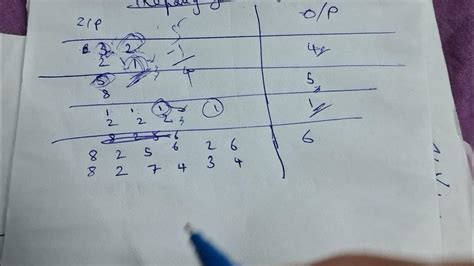 I/P O/P
3 2 4
2 1
5 5
8
1 1 1 1 1
2 2 2
8 2 5 6 6
8 2 5 6 2 6
8 2 7 4 3 4